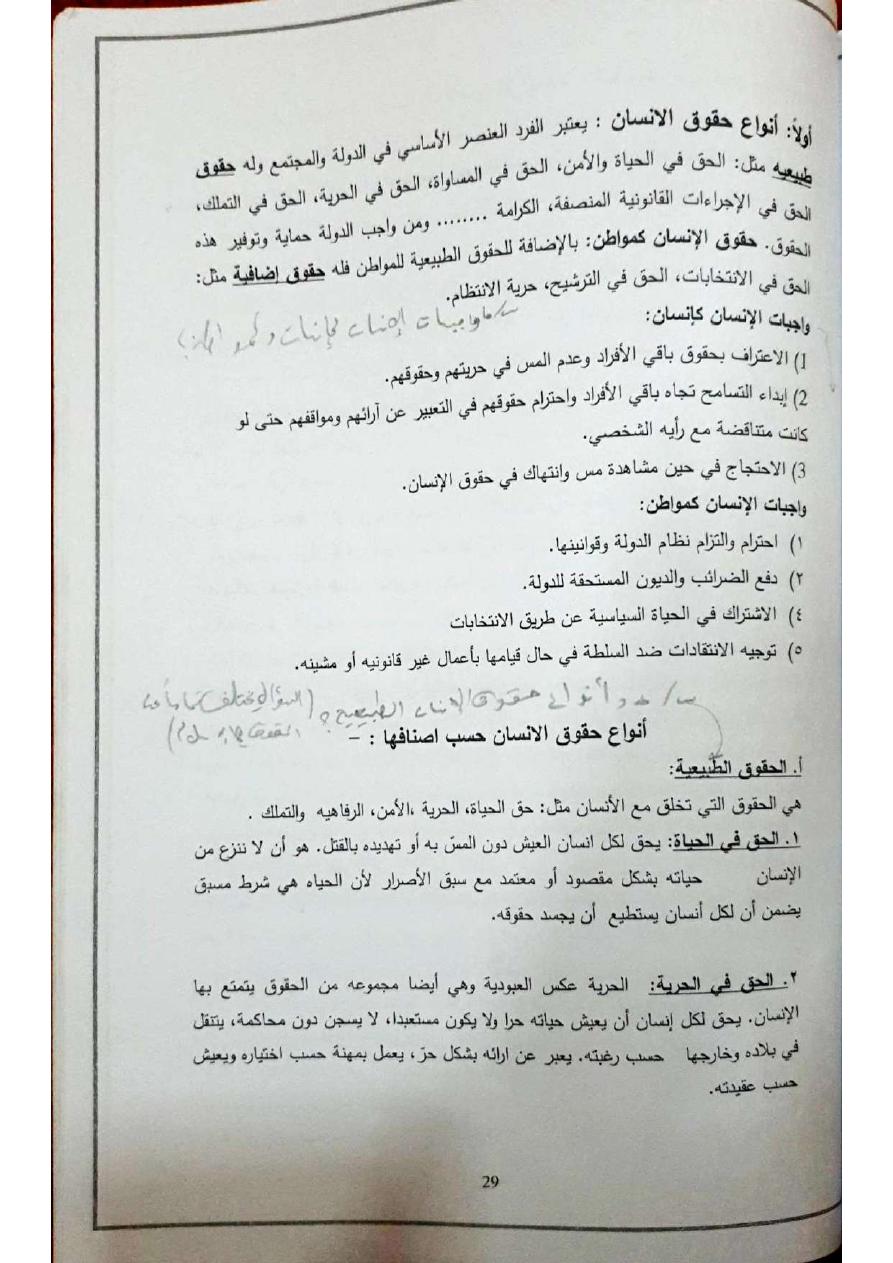 أولاً: أنواع حقوق الانسان : يعتبر الفرد العنصر الأساسي في الدولة والمجتمع وله حقوق
طبيعيه مثل: الحق في الحياة والأمن، الحق في المساواة، الحق في الحرية، الحق في التملك،
الحق في الإجراءات القانونية المنصفة، الكرامة ........ ومن واجب الدولة حماية وتوفير هذه
الحقوق. حقوق الإنسان كمواطن: بالإضافة للحقوق الطبيعية للمواطن فله حقوق إضافية مثل:
الحق في الانتخابات، الحق في الترشيح، حرية الانتظام.
واجبات الإنسان كإنسان:
س/ ما واجبات الإنسان كإنسان
1) الاعتراف بحقوق باقي الأفراد وعدم المس في حريتهم وحقوقهم.
2) إبداء التسامح تجاه باقي الأفراد واحترام حقوقهم في التعبير عن آرائهم ومواقفهم حتى لو
كانت متناقضة مع رأيه الشخصي.
3) الاحتجاج في حين مشاهدة مس وانتهاك في حقوق الإنسان.
واجبات الإنسان كمواطن:
١) احترام والتزام نظام الدولة وقوانينها.
٢) دفع الضرائب والديون المستحقة للدولة.
٤) الاشتراك في الحياة السياسية عن طريق الانتخابات
٥) توجيه الانتقادات ضد السلطة في حال قيامها بأعمال غير قانونيه أو مشينه.
س/ عدد أنواع حقوق الإنسان الطبيعية؟ (السؤال يختلف تماماً عن
الحقوق
أنواع حقوق الانسان حسب اصنافها : –
أ. الحقوق الطبيعية:
هي الحقوق التي تخلق مع الأنسان مثل: حق الحياة، الحرية ،الأمن، الرفاهيه والتملك .
١. الحق في الحياة: يحق لكل انسان العيش دون المسّ به أو تهديده بالقتل. هو أن لا ننزع من
الإنسان حياته بشكل مقصود أو معتمد مع سبق الأصرار لأن الحياه هي شرط مسبق
يضمن أن لكل أنسان يستطيع أن يجسد حقوقه.
٢. الحق في الحرية: الحرية عكس العبودية وهي أيضا مجموعه من الحقوق يتمتع بها
الإنسان. يحق لكل إنسان أن يعيش حياته حرا ولا يكون مستعبدا، لا يسجن دون محاكمة، يتنقل
في بلاده وخارجها حسب رغبته. يعبر عن ارائه بشكل حرّ، يعمل بمهنة حسب اختياره ويعيش
حسب عقيدته.
29